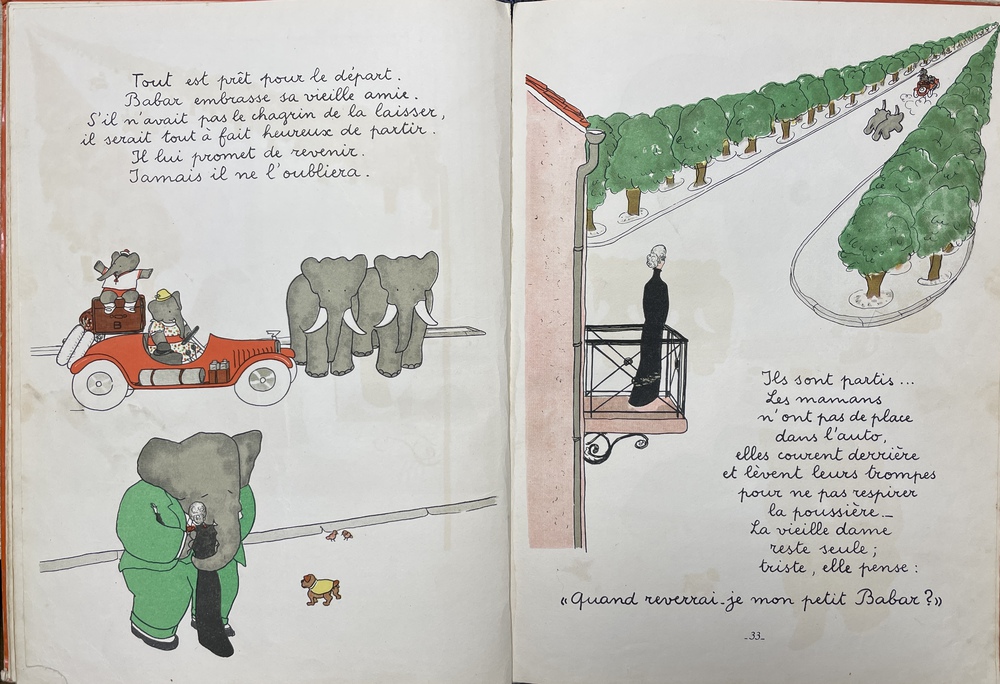 Tout est prêt pour le départ.
Babar embrasse sa vieille amie.
S'il n'avait pas le chagrin de la laisser,
il serait tout à fait heureux de partir.
Il lui promet de revenir.
Jamais il ne l'oubliera.
B
Ils sont partis...
Les mamans
n'ont pas de place
dans l'auto,
elles courent derrière
et lèvent leurs trompes
pour ne pas respirer
la poussière._
La vieille dame
reste seule ;
triste, elle pense :
«Quand reverrai-je mon petit Babar ?»
_33_